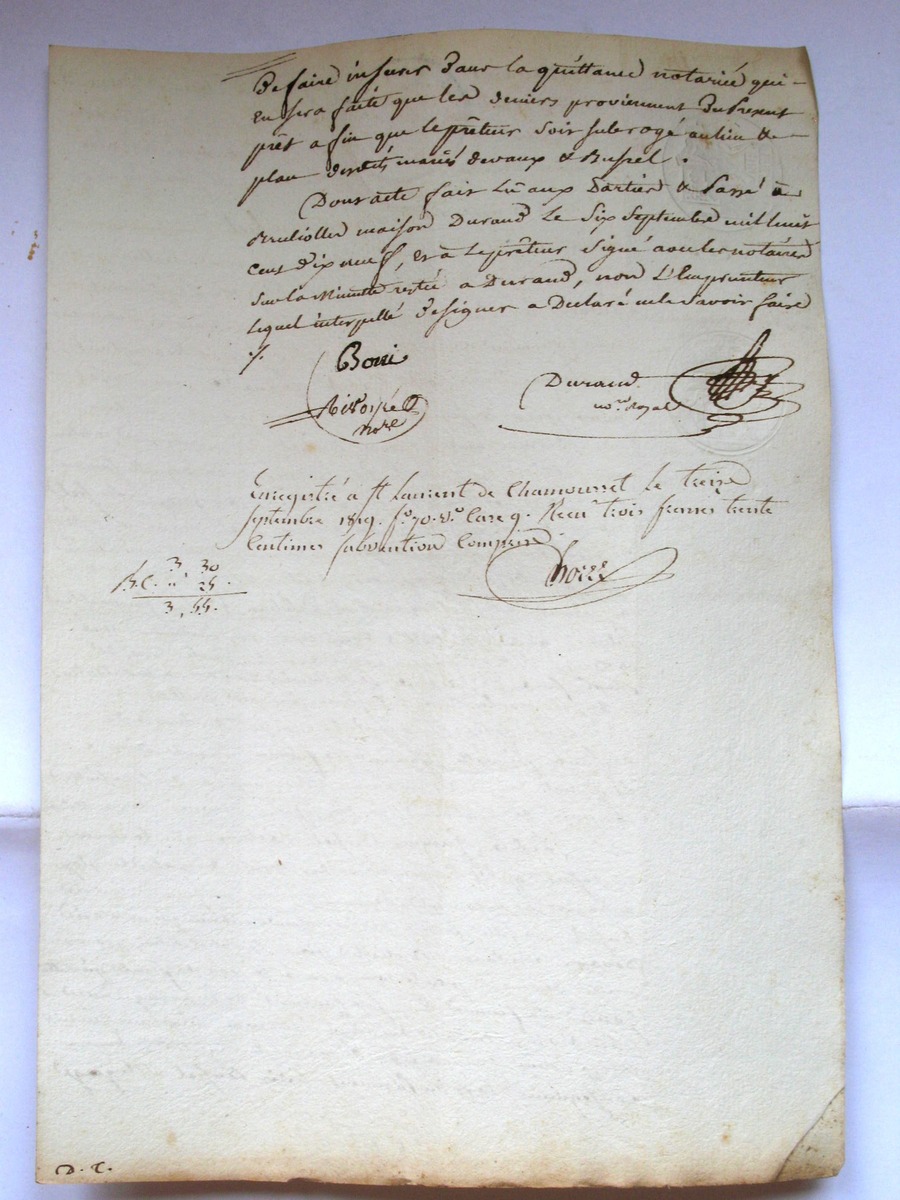 De faire inserer dans la quittance notariée qui
en sera faite que les deniers proviennent du présent
prêt afin que le prêteur soit subrogé au lieu &
place desdits mariés devaux & Bussel.
Dont acte fait lû aux parties & passé à
Brulliolles maison Durand le six septembre mil huit
cent dix neuf, et a le prêteur signé avec les notaires
sur la minute restée a Durand, non l'Emprunteur
lequel interpellé de signer a déclaré ne le savoir faire
./.
Durand
no.re royal
nore
Enregistré à St Laurent de Chamousset le treize
septembre 1819. fo. 70. vo. Case 9. Reçu trois francs trente
centimes subvention comprise
3 30
B.C. " 25.
3, 55.
D. C.